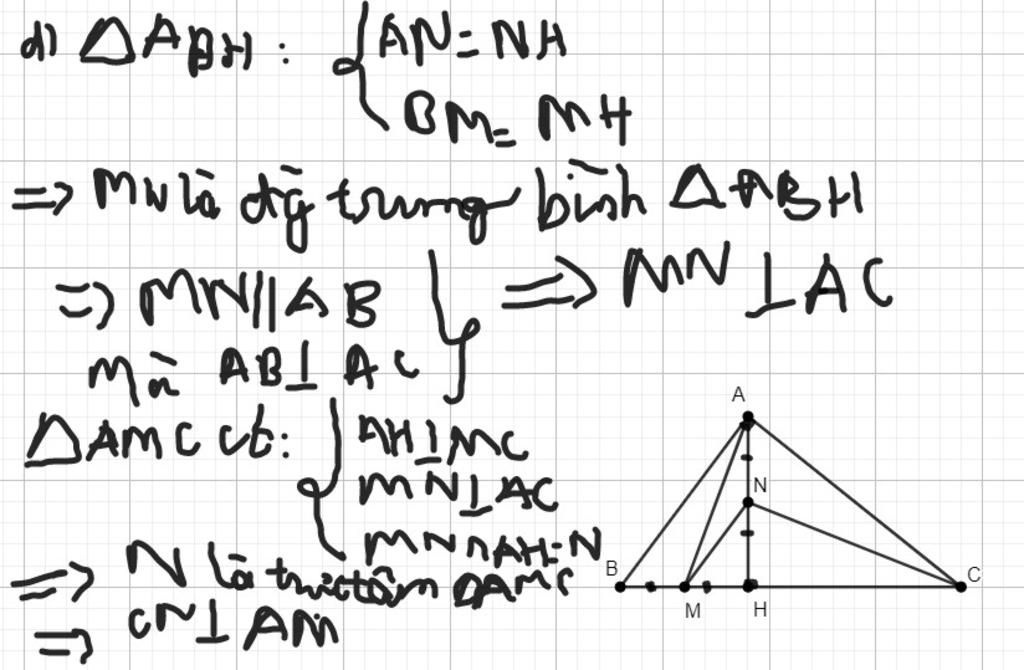 d) △ABH : { AN = NH
BM = MH
=> MN là đg trung bình △ABH
=> MN || AB } => MN ⊥ AC
mà AB ⊥ AC
△AMC có: { AH ⊥ MC
MN ⊥ AC
MN ∩ AH = N
=> N là trực tâm △AMC
=> CN ⊥ AM
A
N
B
M
H
C